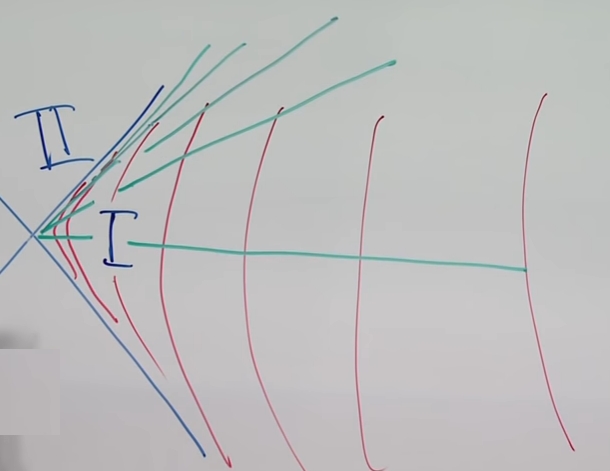 II
I